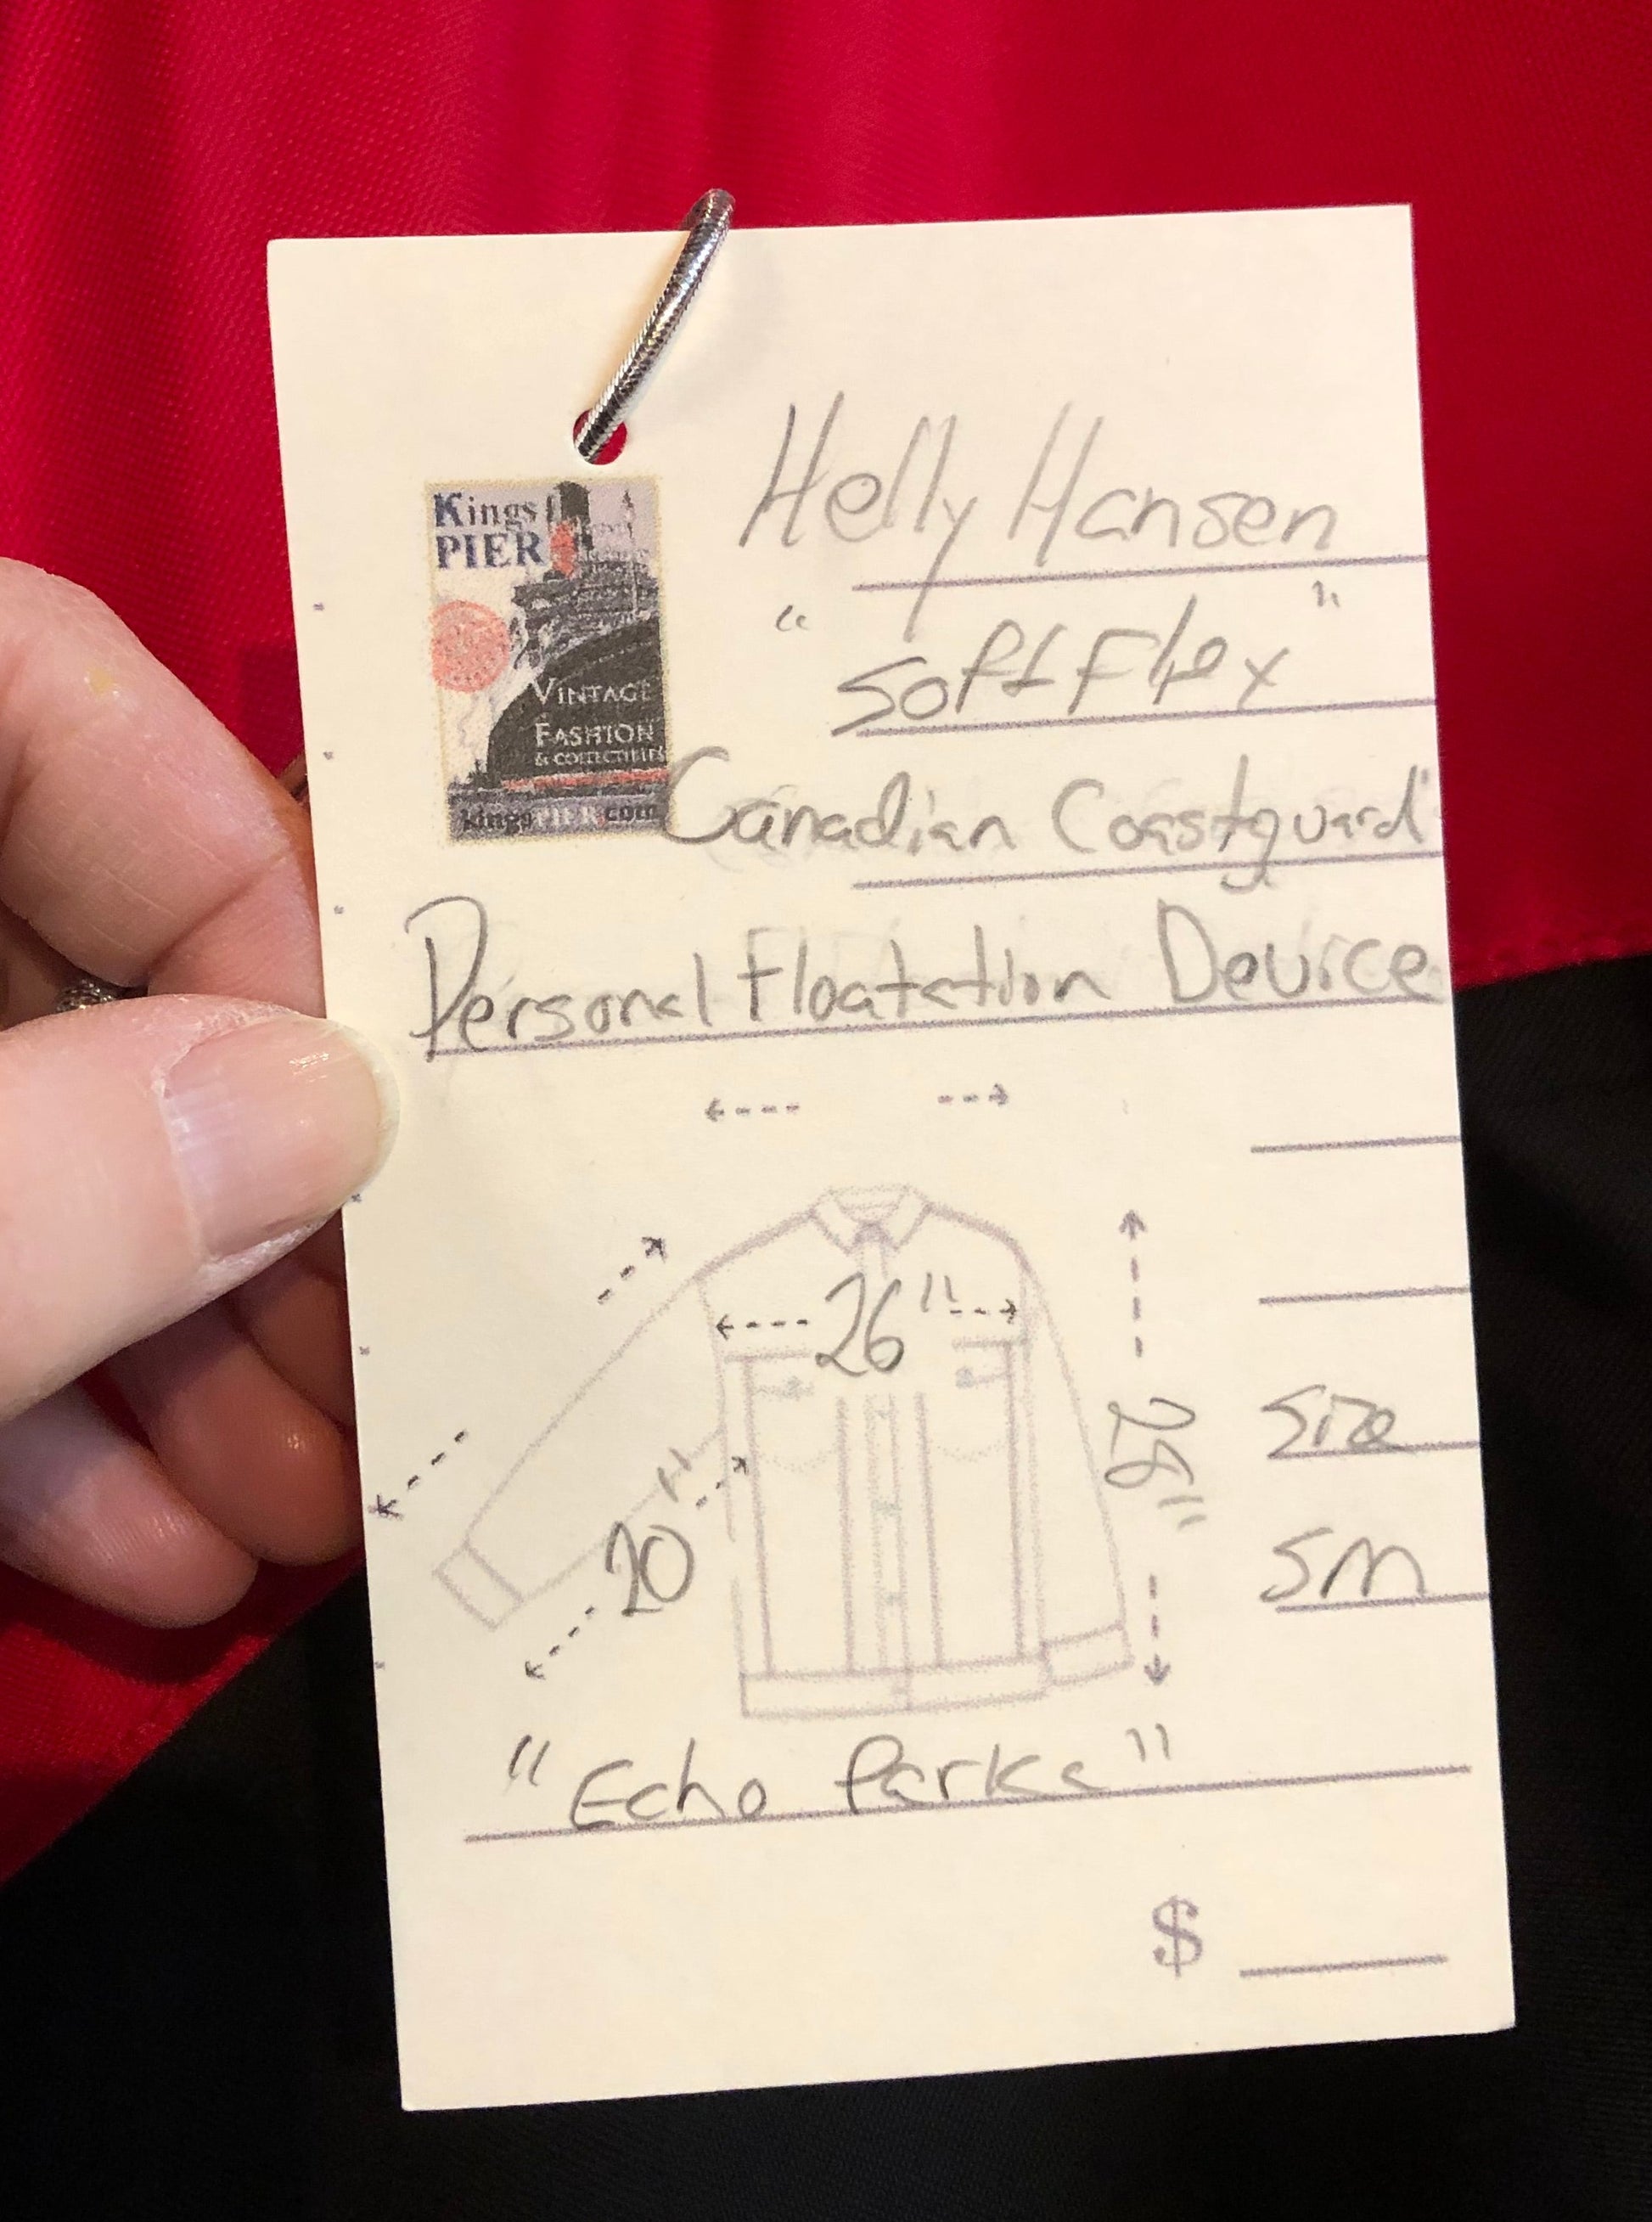 Kings
PIER
VINTAGE
FASHION
& COLLECTIBLES
kingsPIER.com
Helly Hansen
"Soft Flex"
Canadian Coastguard
Personal Floatation Device
26"
20"
Size
SM
"Echo Parka"
$